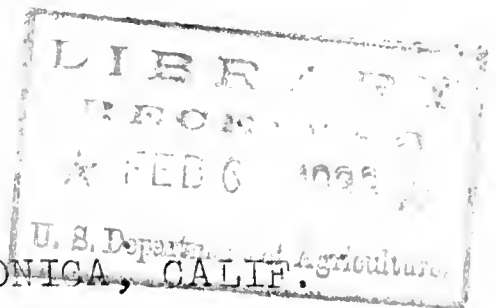 LIBRARY
RECEIVED
★ FEB 6 ★
U. S. Department of Agriculture
ONICA, CALIF.